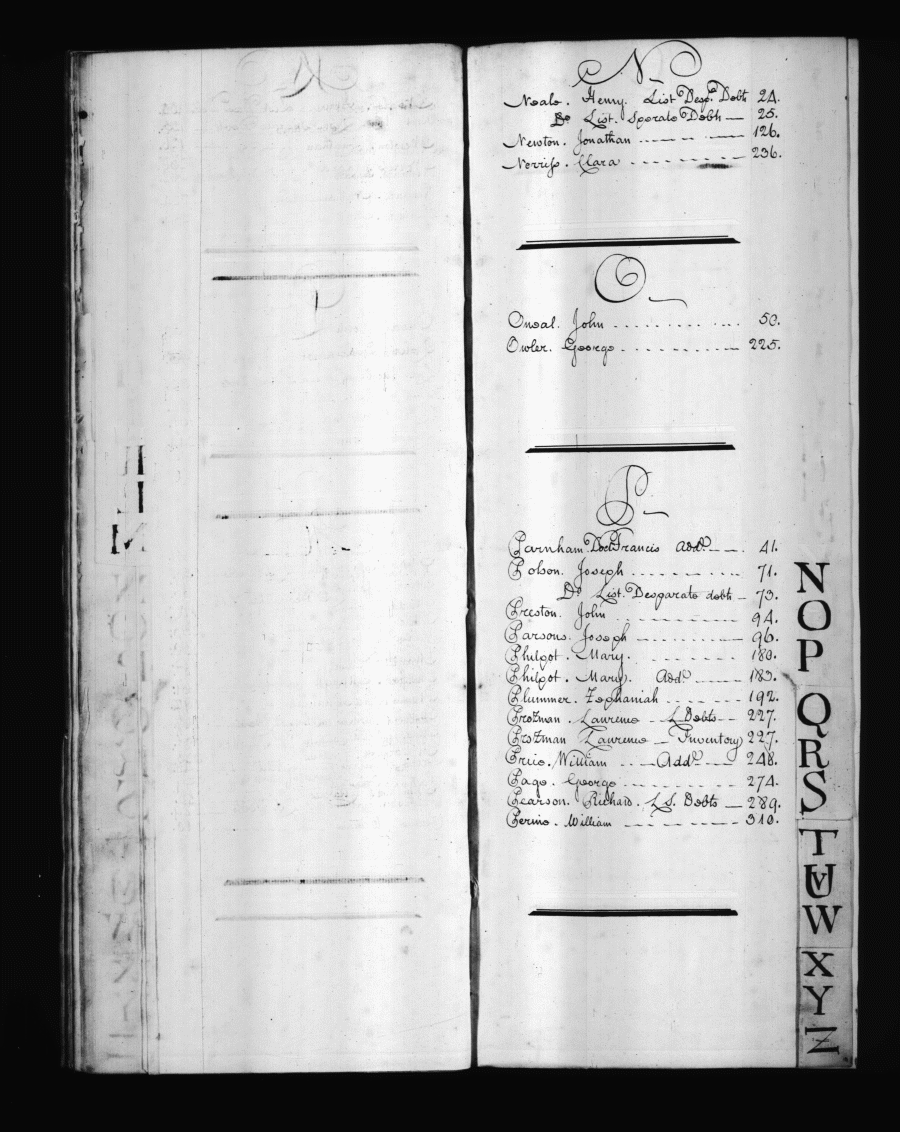 N
Neale. Henry. List Desp. Debts 24.
Do List. Sperate Debts 25.
Newton. Jonathan 126.
Norriss. Clara 236.
O
Oneal. John 50.
Owler. George 225.
P
Parnham Doctr Francis Addl. 41.
Pobson. Joseph 71.
Do List. Desparate debts 73.
Preston. John 94.
Parsons. Joseph 96.
Philpot. Mary. 180.
Philpot. Mary. Addl. 183.
Plummer. Zephaniah 192.
Protzman. Laurence L Debts 227.
Protzman Laurence Inventory 227.
Price. William Addl. 248.
Page. George 274.
Pearson. Richard. L S. Debts 289.
Perine. William 310.
N
O
P
Q
R
S
T
UV
W
X
Y
Z